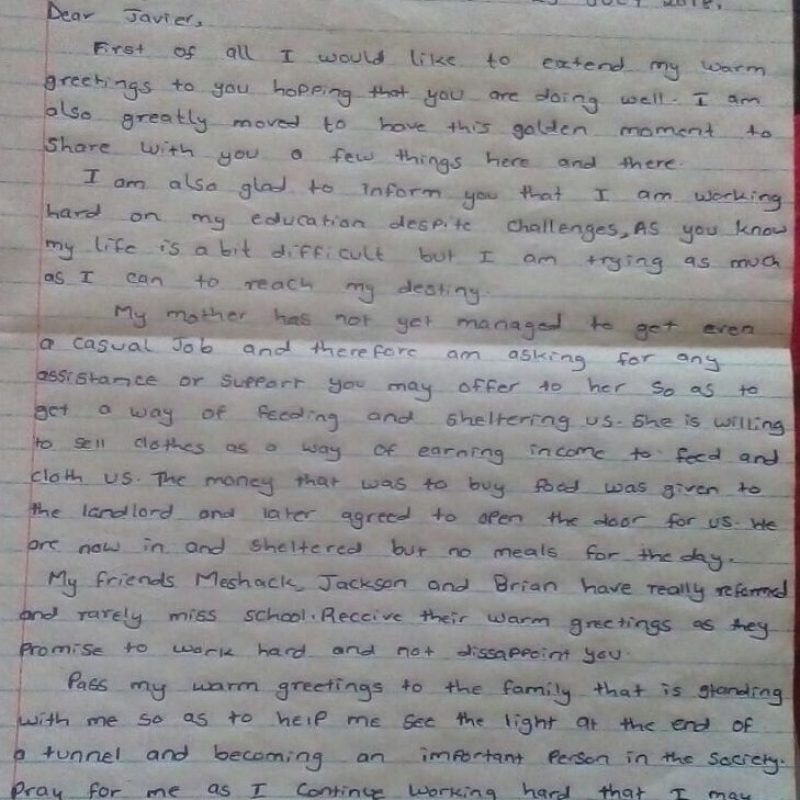 July 2018.
Dear Javier,
First of all I would like to extend my warm
greetings to you hopping that you are doing well. I am
also greatly moved to have this golden moment to
share with you a few things here and there.
I am also glad to inform you that I am working
hard on my education despite challenges, As you know
my life is a bit difficult but I am trying as much
as I can to reach my destiny.
My mother has not yet managed to get even
a casual Job and therefore am asking for any
assistance or support you may offer to her so as to
get a way of feeding and sheltering us. She is willing
to sell clothes as a way of earning income to feed and
cloth us. The money that was to buy food was given to
the landlord and later agreed to open the door for us. We
are now in and sheltered but no meals for the day.
My friends Meshack, Jackson and Brian have really reformed
and rarely miss school. Receive their warm greetings as they
promise to work hard and not dissappoint you.
Pass my warm greetings to the family that is standing
with me so as to help me see the light at the end of
a tunnel and becoming an important person in the society.
Pray for me as I continue working hard that I may